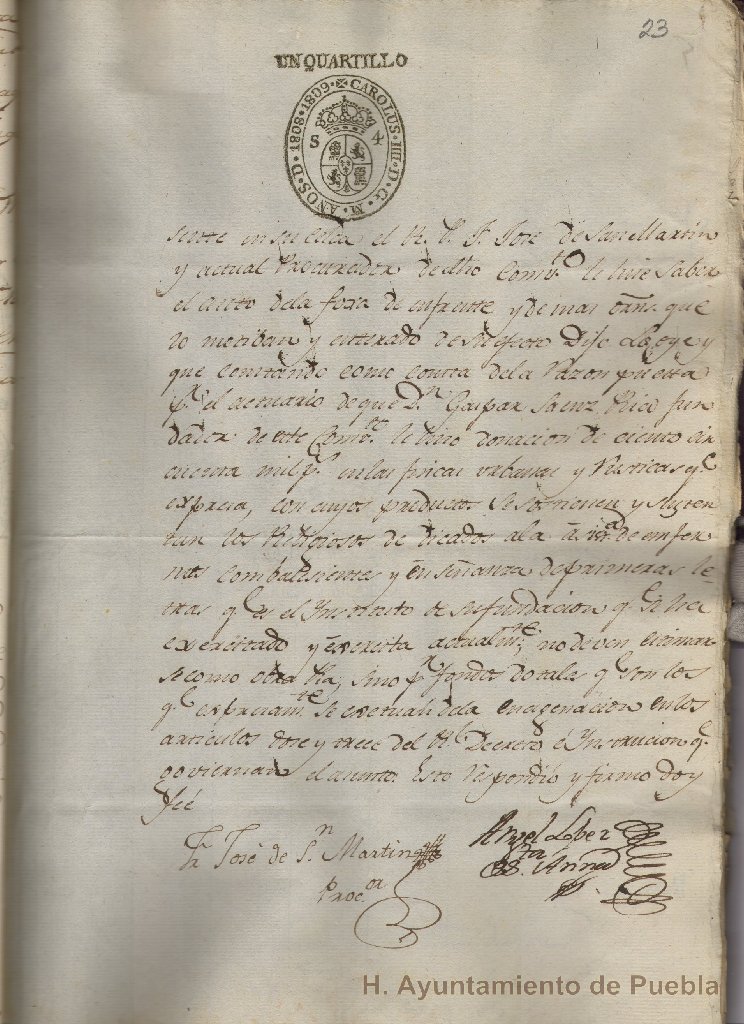 23
UN QUARTILLO
CAROLUS · IIII · D · G · M · ANOS · D · 1808 · 1809 ·
S 4
sente en su celda el R. P. F. Jose de San Martin
y actual Procurador de dho Combto. le hise saber
el auto dela foxa de enfrente y demas que
lo motiban y enterado de su efecto Dijo Lo oye y
que constando como consta dela razon puesta
pr. el actuario de que Dn. Gaspar Saenz Rico fun
dador de este Combto. le hizo donacion de ciento sin
cuenta mil ps. en las fincas urbanas y rusticas qe.
expresa, con cuyos productos se sostienen y susten
tan los Religiosos dedicados ala de enfer
mos combalesientes y enseñanza de primeras le-
tras qe. es el Instituto de su fundacion qe. se ha
exersitado y exersita actualmte.; no deven estimar
se como obra Pia, sino pr. fondos dotales qe. son los
qe. expresamte. se exetuan dela enagenacion en los
articulos dose y trece del Rl. Decreto é Instrucion qe.
goviernan el asunto. Esto respondió y firmo doy
feé
Fr. José de Sn. Martin
Procor.
Angel Lopez
Sta. Anna
H. Ayuntamiento de Puebla